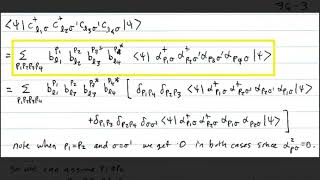 96-3
⟨4| c†_{l₁σ} c†_{l₂σ'} c_{l₃σ'} c_{l₄σ} |4⟩
= Σ_{P₁P₂P₃P₄} b_{l₁}^{P₁} b_{l₂}^{P₂} b_{l₃}^{P₃*} b_{l₄}^{P₄*} ⟨4| α†_{P₁σ} α†_{P₂σ'} α_{P₃σ'} α_{P₄σ} |4⟩
= Σ_{P₁P₂P₃P₄} b_{l₁}^{P₁} b_{l₂}^{P₂} b_{l₃}^{P₃*} b_{l₄}^{P₄*} [ δ_{P₁P₄} δ_{P₂P₃} ⟨4| α†_{P₁σ} α†_{P₂σ'} α_{P₂σ'} α_{P₁σ} |4⟩
+ δ_{P₁P₃} δ_{P₂P₄} δ_{σσ'} ⟨4| α†_{P₁σ} α†_{P₂σ} α_{P₁σ} α_{P₂σ} |4⟩ ]
note when P₁=P₂ and σ=σ' we get 0 in both cases since α²_{Pσ}=0
so we can assume P₁≠P₂